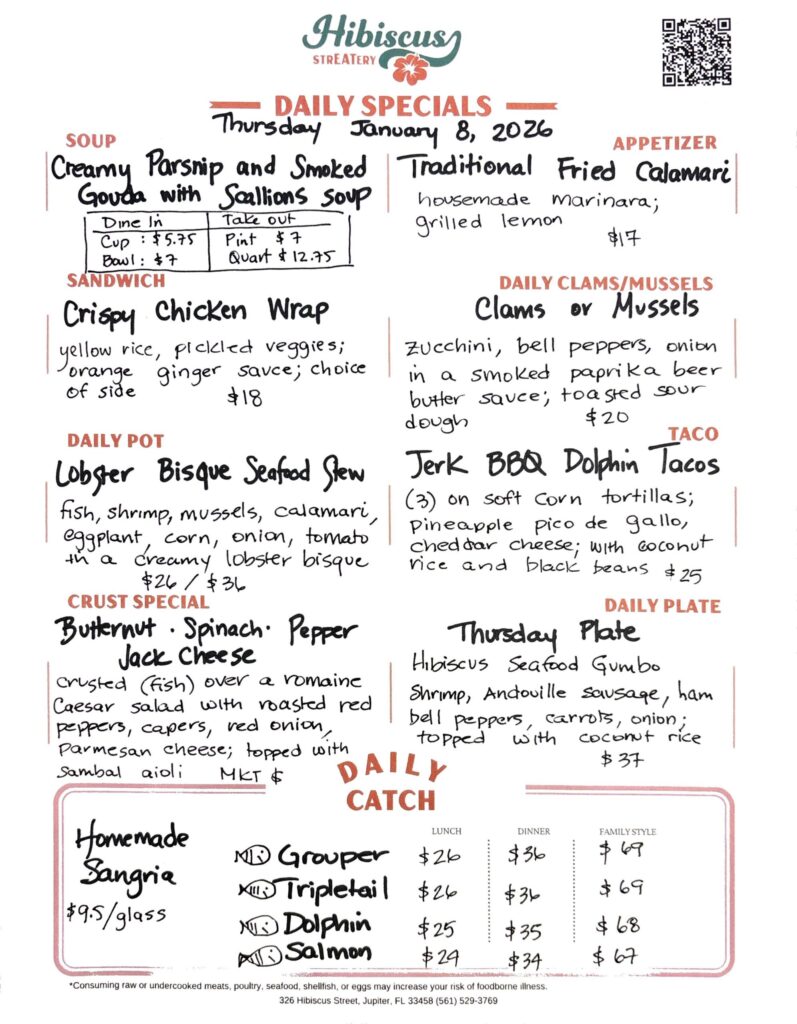 Hibiscus
STREATERY
DAILY SPECIALS
Thursday January 8, 2026
SOUP
Creamy Parsnip and Smoked
Gouda with Scallions soup
Dine In Take out
Cup : $5.75 Pint $7
Bowl : $7 Quart $12.75
APPETIZER
Traditional Fried Calamari
housemade marinara;
grilled lemon
$17
SANDWICH
Crispy Chicken Wrap
yellow rice, pickled veggies;
orange ginger sauce; choice
of side $18
DAILY CLAMS/MUSSELS
Clams or Mussels
zucchini, bell peppers, onion
in a smoked paprika beer
butter sauce; toasted sour
dough $20
DAILY POT
Lobster Bisque Seafood Stew
fish, shrimp, mussels, calamari,
eggplant, corn, onion, tomato
in a creamy lobster bisque
$26 / $36
TACO
Jerk BBQ Dolphin Tacos
(3) on soft corn tortillas;
pineapple pico de gallo,
cheddar cheese; with coconut
rice and black beans $25
CRUST SPECIAL
Butternut · Spinach · Pepper
Jack Cheese
crusted (fish) over a romaine
Caesar salad with roasted red
peppers, capers, red onion,
Parmesan cheese; topped with
sambal aioli MKT $
DAILY PLATE
Thursday Plate
Hibiscus Seafood Gumbo
Shrimp, Andouille sausage, ham
bell peppers, carrots, onion;
topped with coconut rice
$37
DAILY
CATCH
Homemade
Sangria
$9.5/glass
LUNCH DINNER FAMILY STYLE
Grouper $26 $36 $69
Tripletail $26 $36 $69
Dolphin $25 $35 $68
Salmon $24 $34 $67
*Consuming raw or undercooked meats, poultry, seafood, shellfish, or eggs may increase your risk of foodborne illness.
326 Hibiscus Street, Jupiter, FL 33458 (561) 529-3769